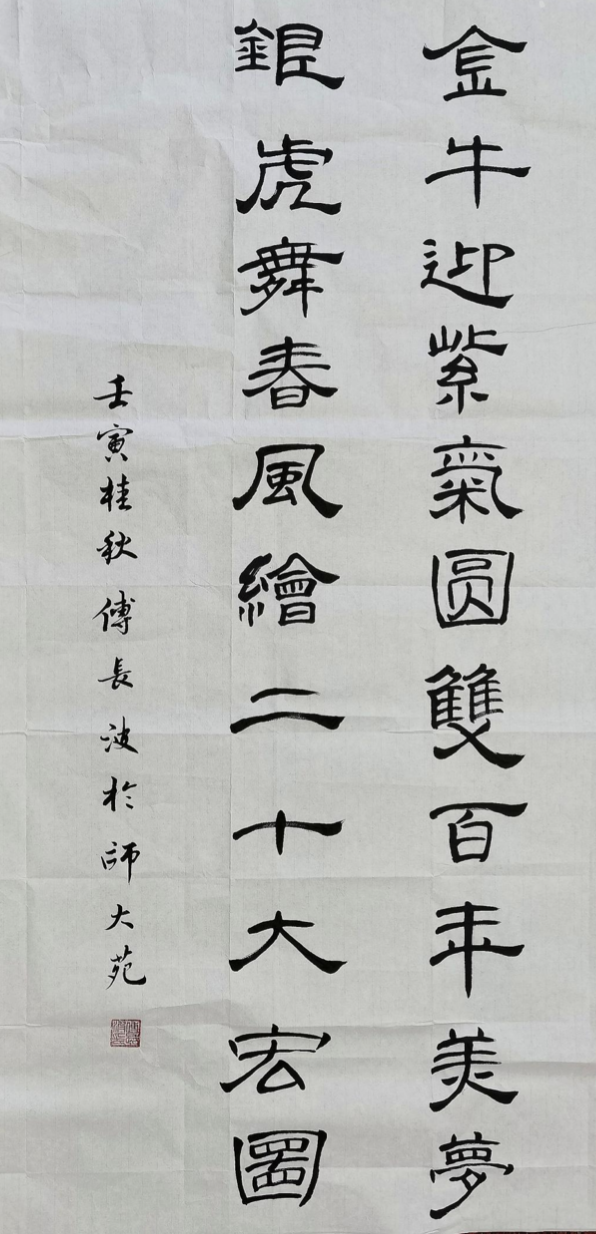 金牛迎紫氣圆雙百年美夢
銀虎舞春風繪二十大宏圖
壬寅桂秋傅長波於師大苑